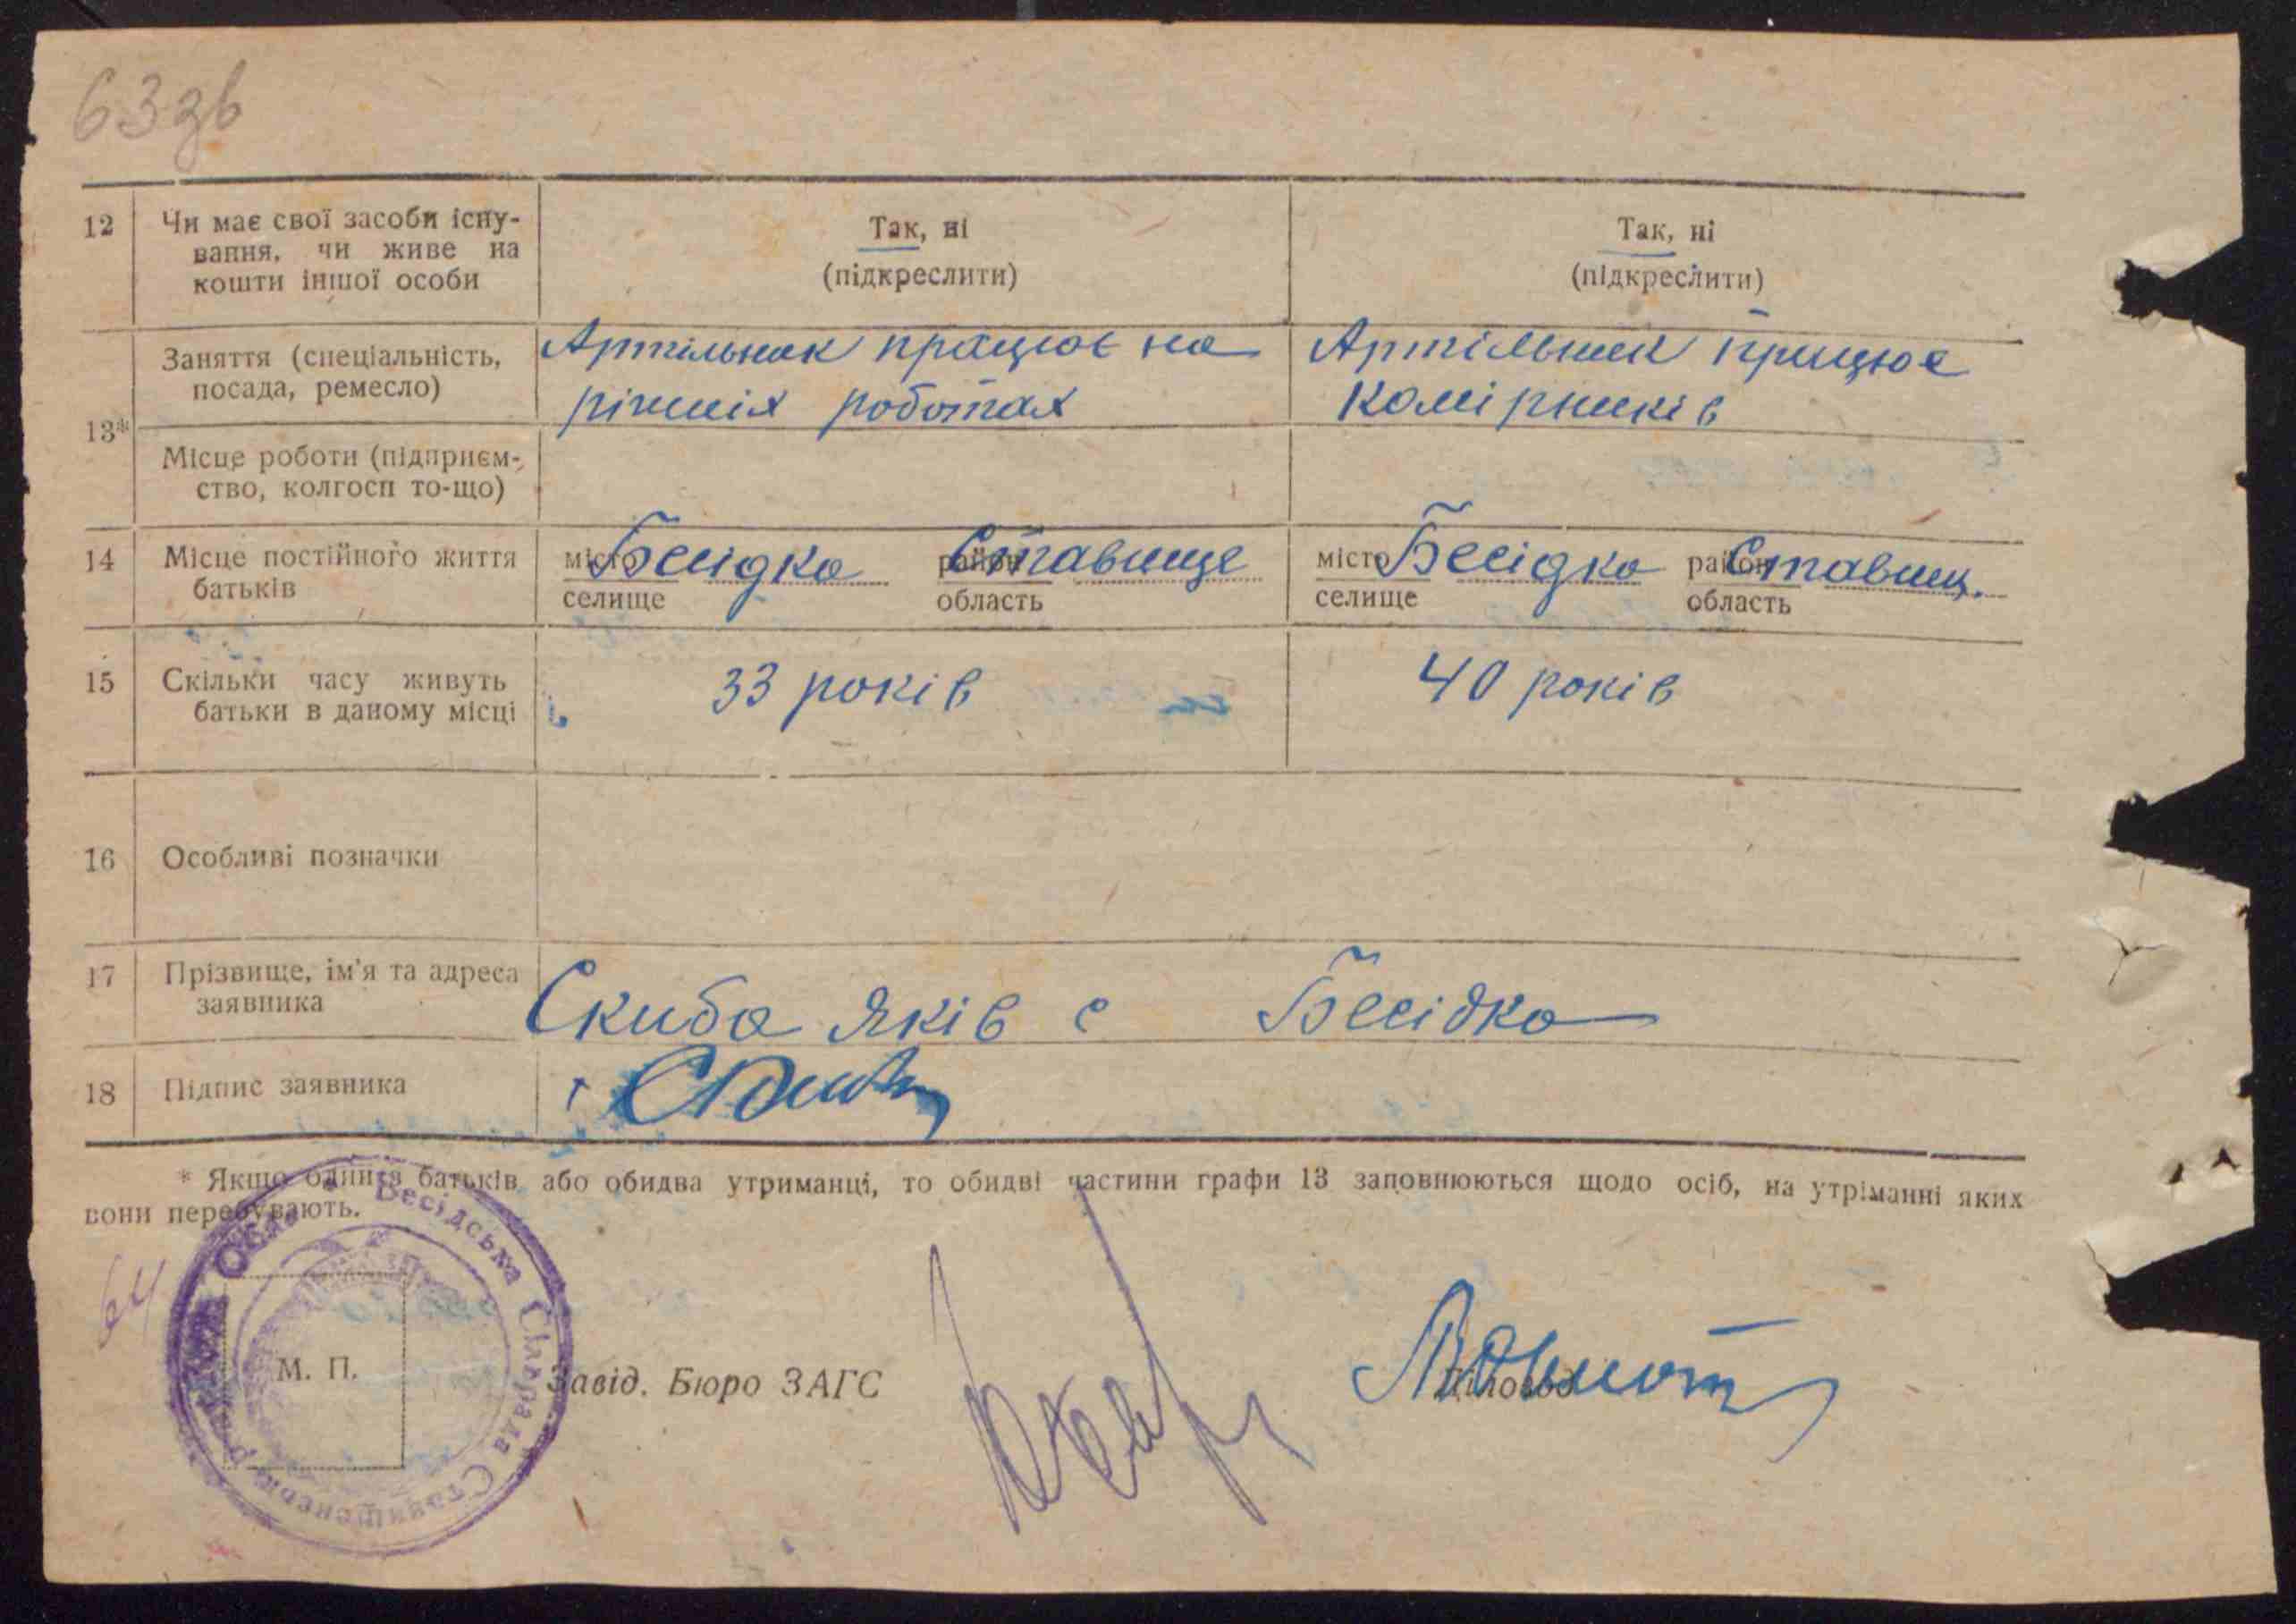 63зв
12 Чи має свої засоби існу- Так, ні Так, ні
вання, чи живе на
кошти іншої особи (підкреслити) (підкреслити)
Заняття (спеціальність, Артільник працює на Артільник працює
посада, ремесло) ріжніх роботах Комірників
13*
Місце роботи (підприєм-
ство, колгосп то-що)
14 Місце постійного життя місто Бесідка район Ставище місто Бесідка район Ставищ.
батьків селище область селище область
15 Скільки часу живуть 33 років 40 років
батьки в даному місці
16 Особливі позначки
17 Прізвище, ім'я та адреса Скиба Яків с Бесідка
заявника
18 Підпис заявника
* Якщо один із батьків або обидва утриманці, то обидві частини графи 13 заповнюються щодо осіб, на утріманні яких
вони перебувають.
64
Бесідська Сільрада Ставищенськ
М. П. Завід. Бюро ЗАГС Діловод